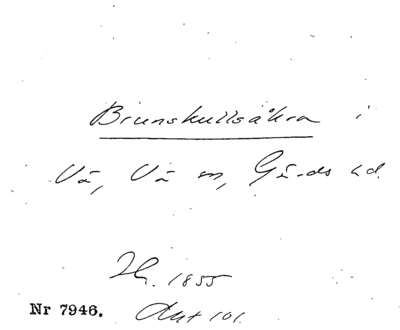 Brunskullsåkra i
Vä, Vä sn, Gärds hd.
Zh. 1855
Nr 7946. Akt 101.